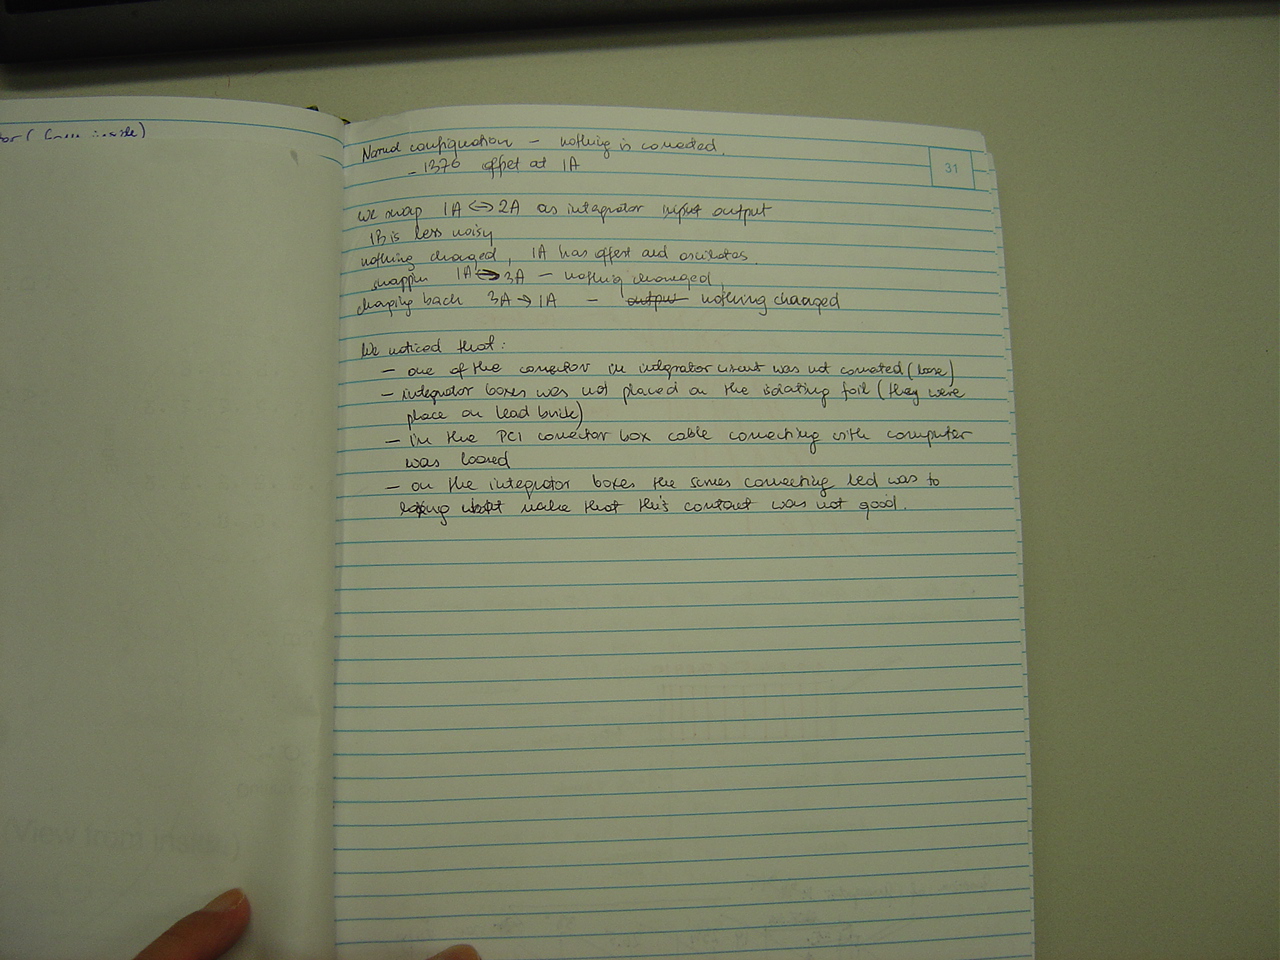 Normal configuration – nothing is conected.
- 1376 offset at 1A
31
We swap 1A ↔ 2A as integrator input output
1B is less noisy
nothing changed, 1A has offset and oscilates.
swappin 1A ↔ 3A – nothing changed,
changing back 3A → 1A – output nothing changed
We noticed that:
– one of the conector in integrator circuit was not conected (loose)
– integrator boxes was not placed on the isolating foil (they were
place on lead brick)
– in the PCI conector box cable connecting with computer
was loosed
– on the integrator boxes the screws connecting led was to
long make that this contact was not good.
(View from inside)